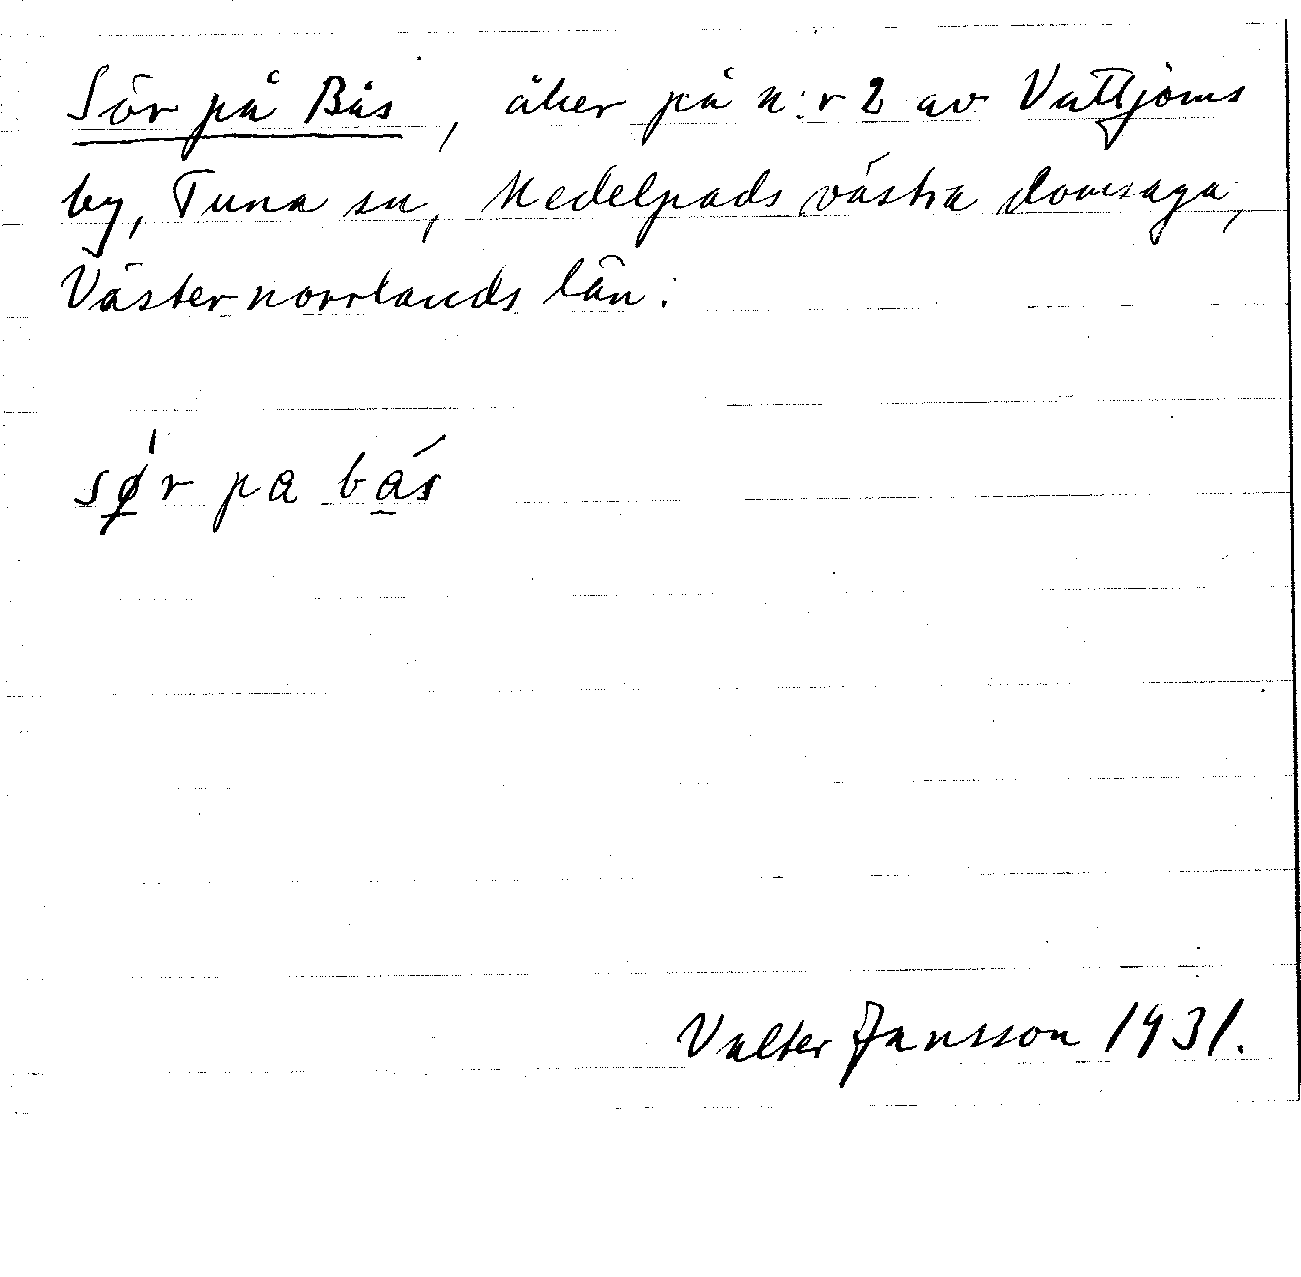 Sör på Bås, åker på n:r 2 av Vattjoms
by, Tuna sn, Medelpads västra domsaga,
Västernorrlands län.
sø̱'r pa ba̱´s
Valter Jansson 1931.